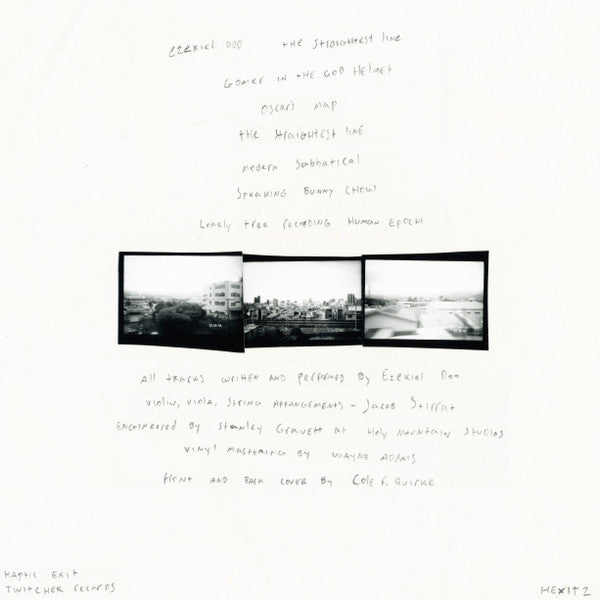 Ezekiel Doo the straightest line
Gomer in the God Helmet
Oscar's map
the straightest line
modern Sabbatical
Speaking Bunny Chow
Lonely tree recording Human Epochs
All tracks written and performed by Ezekiel Doo
violin, viola, string arrangements - Jacob Stirrat
engineered by Stanley Gravett at Holy Mountain Studios
vinyl mastering by Wayne Adams
front and back cover by Cole F. Quirke
Haptic Exit
Twitcher records
HEXIT2